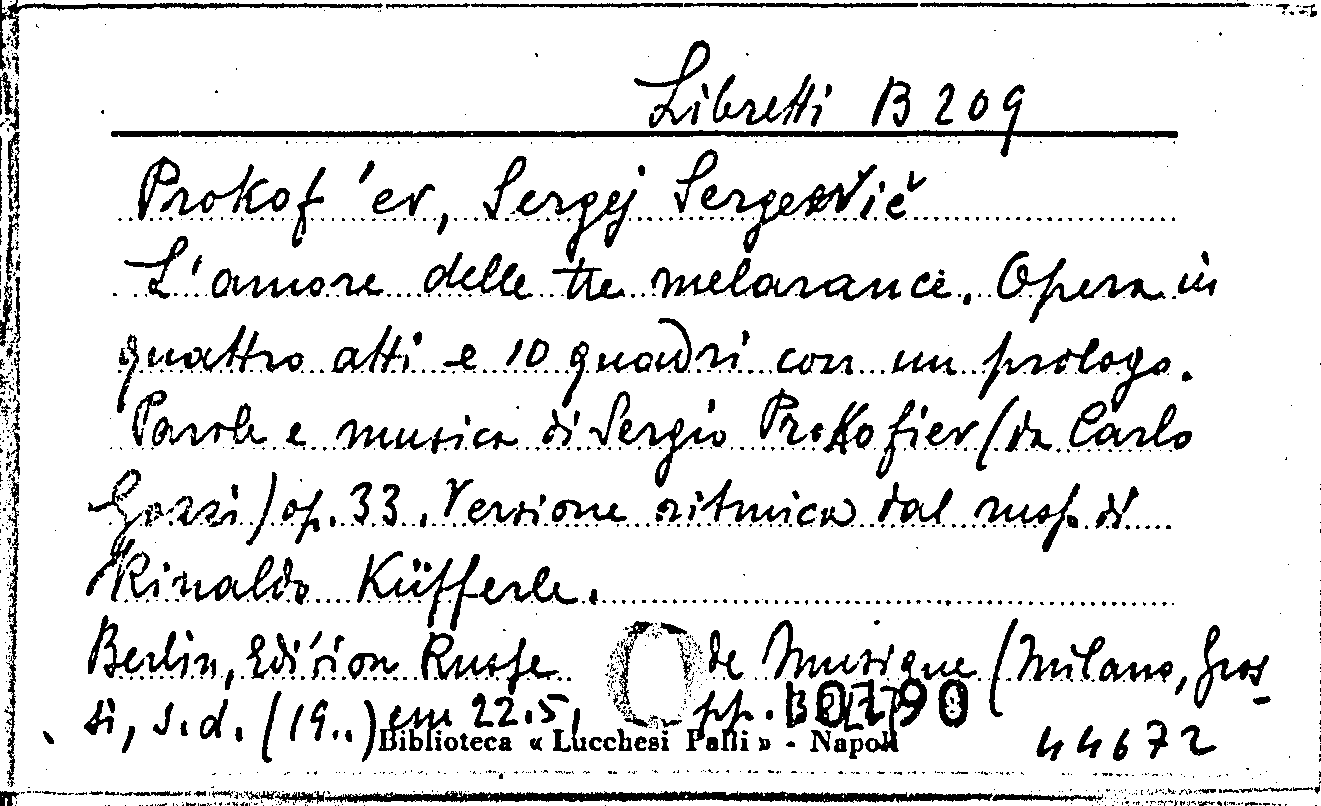 Libretti B 209
Prokof'ev, Sergej Sergeevič
L'amore delle tre melarance. Opera in
quattro atti e 10 quadri con un prologo.
Parole e musica di Sergio Prokofiev (da Carlo
Gozzi) op. 33. Versione ritmica dal russo di
Rinaldo Küfferle.
Berlin, Edition Russe de Musique (Milano, Gros-
si, s.d. (19..) cm 22.5, pp.
Biblioteca « Lucchesi Palli » - Napoli
44672